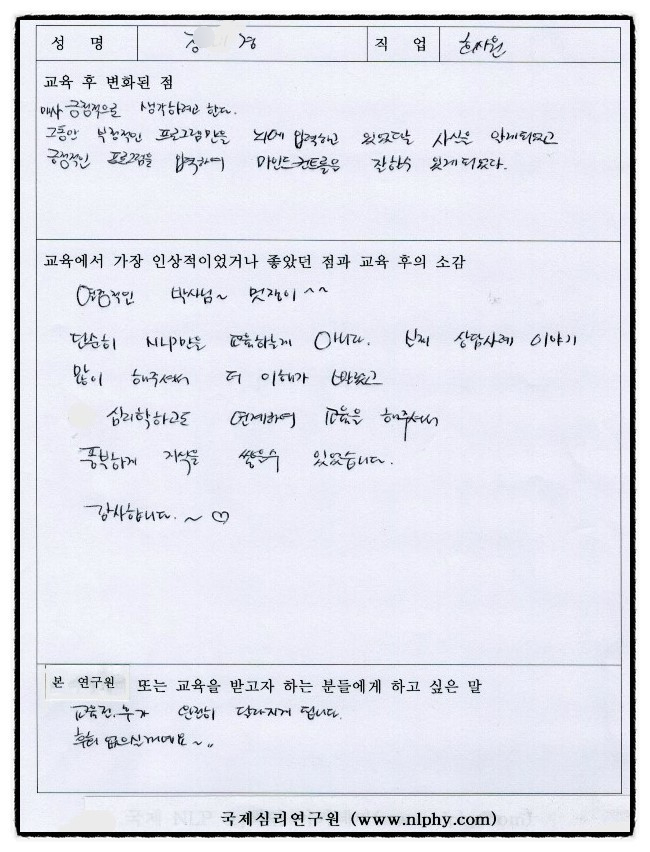 성 명 직 업 회사원
교육 후 변화된 점
매사 긍정적으로 생각하려고 한다.
그동안 부정적인 프로그램만을 뇌에 입력하고 있었단 사실을 알게되었고
긍정적인 프로그램을 입력하여 마인드컨트롤을 잘할수 있게되었다.
교육에서 가장 인상적이었거나 좋았던 점과 교육 후의 소감
열정적인 박사님~ 멋쟁이 ^^
단순히 NLP만을 교육하는게 아니라. 실제 상담사례 이야기
많이 해주셔서 더 이해가 빨랐고
심리학하고도 연계하여 교육을 해주셔서
풍부하게 지식을 쌓을수 있었습니다.
감사합니다.~ ♡
본 연구원 또는 교육을 받고자 하는 분들에게 하고 싶은 말
교육전.후가 완전히 달라지게 됩니다.
후회 없으실거예요~
국제심리연구원 (www.nlphy.com)